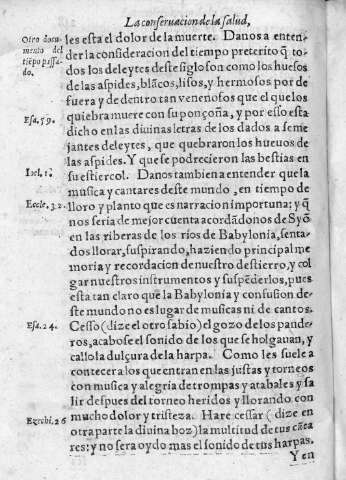 La conseruacion de la salud,
Otro docu-
mento del
tiẽpo passa
do.
les esta el dolor de la muerte. Danos a enten-
der la consideracion del tiempo preterito q̃ to
dos los deleytes deste siglo son como los huesos
de las aspides, blãcos, lisos, y hermosos por de
fuera y de dentro tan venenosos que el que los
quiebra muere con su ponçoña, y por esso esta
Esa. 59.
dicho en las diuinas letras de los dados a seme
jantes deleytes, que quebraron los hueuos de
las aspides. Y que se podrecieron las bestias en
Ioel. 1.
su estiercol. Danos tambien a entender que la
musica y cantares deste mundo, en tiempo de
Eccle. 32.
lloro y planto que es narracion importuna: y q̃
nos seria de mejor cuenta acordãdonos de Syõ
en las riberas de los rios de Babylonia, senta-
dos llorar, suspirando, haziendo principal me
moria y recordacion de nuestro destierro, y col
gar nuestros instrumentos y suspẽderlos, pues
esta tan claro que la Babylonia y confusion de-
ste mundo no es lugar de musicas ni de cantos.
Esa. 24.
Cesso (dize el otro sabio) el gozo de los pande
ros, acabose el sonido de los que se holgauan, y
callo la dulçura de la harpa. Como les suele a
contecer a los que entran en las justas y torneos
con musica y alegria de trompas y atabales y sa
lir despues del torneo heridos y llorando con
Ezechi. 26
mucho dolor y tristeza. Hare cessar (dize en
otra parte la diuina boz) la multitud de tus cãta
res: y no sera oydo mas el sonido de tus harpas.
Y en